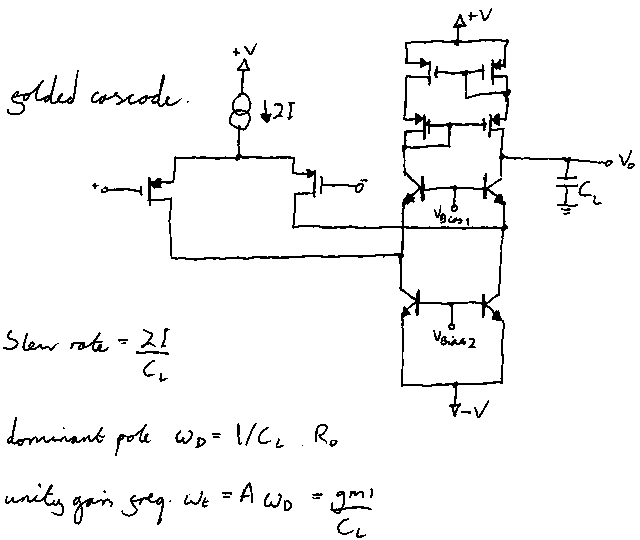 +V
+V
folded cascode.
2I
+
-
Vo
CL
VBias1
VBias2
-V
Slew rate = 2I/CL
dominant pole ωD = 1/CL Ro
unity gain freq. ωt = A ωD = gm1/CL